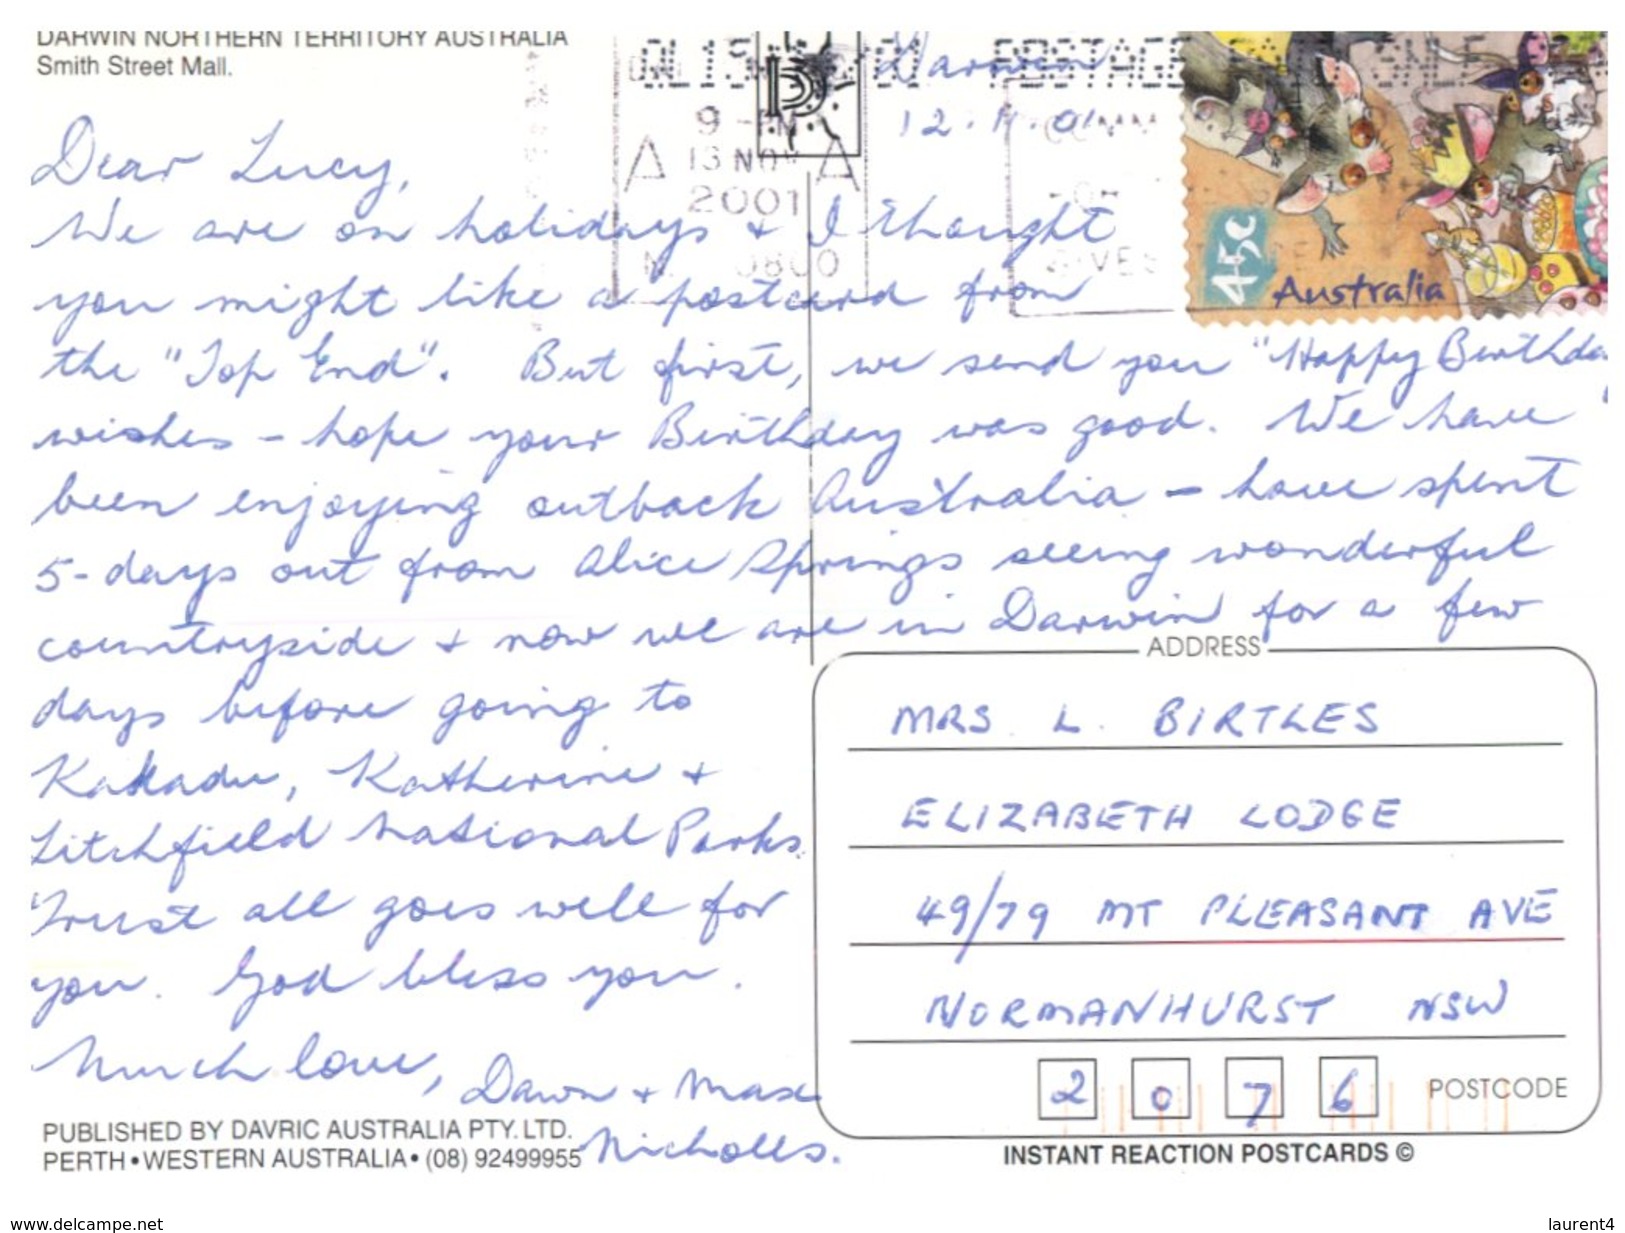 DARWIN NORTHERN TERRITORY AUSTRALIA
Smith Street Mall.
Darwin
12.11.01
POSTAGE
9 - PM
A 13 NOV A
2001
0800
45c
Australia
Dear Lucy,
We are on holidays + I thought
you might like a postcard from
the "Top End". But first, we send you "Happy Birthday"
wishes - hope your Birthday was good. We have
been enjoying outback Australia - have spent
5-days out from Alice Springs seeing wonderful
countryside + now we are in Darwin for a few
days before going to
Kakadu, Katherine +
Litchfield National Parks.
Trust all goes well for
you. God bless you.
Much love, Dawn + Max
Nicholls.
ADDRESS
MRS L. BIRTLES
ELIZABETH LODGE
49/79 MT PLEASANT AVE
NORMANHURST NSW
2076 POSTCODE
PUBLISHED BY DAVRIC AUSTRALIA PTY. LTD.
PERTH • WESTERN AUSTRALIA • (08) 92499955
INSTANT REACTION POSTCARDS ©
www.delcampe.net
laurent4